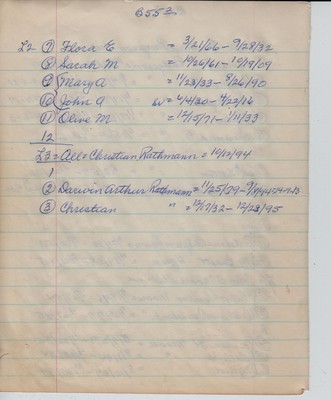 6552
L2 (7) Flora E = 3/21/66 - 9/28/32
(8) Sarah M = 10/26/61 - 10/19/09
(9) Mary A = 11/23/33 - 8/26/90
(10) John A W = 4/4/30 - 4/22/16
(11) Olive M = 12/15/71 - 1/11/33
12
L3 = All = Christian Rathmann = 10/12/94
1
(2) Darwin Arthur Rathmann = 11/25/79 -
(3) Christian " = 12/17/32 - 12/23/95